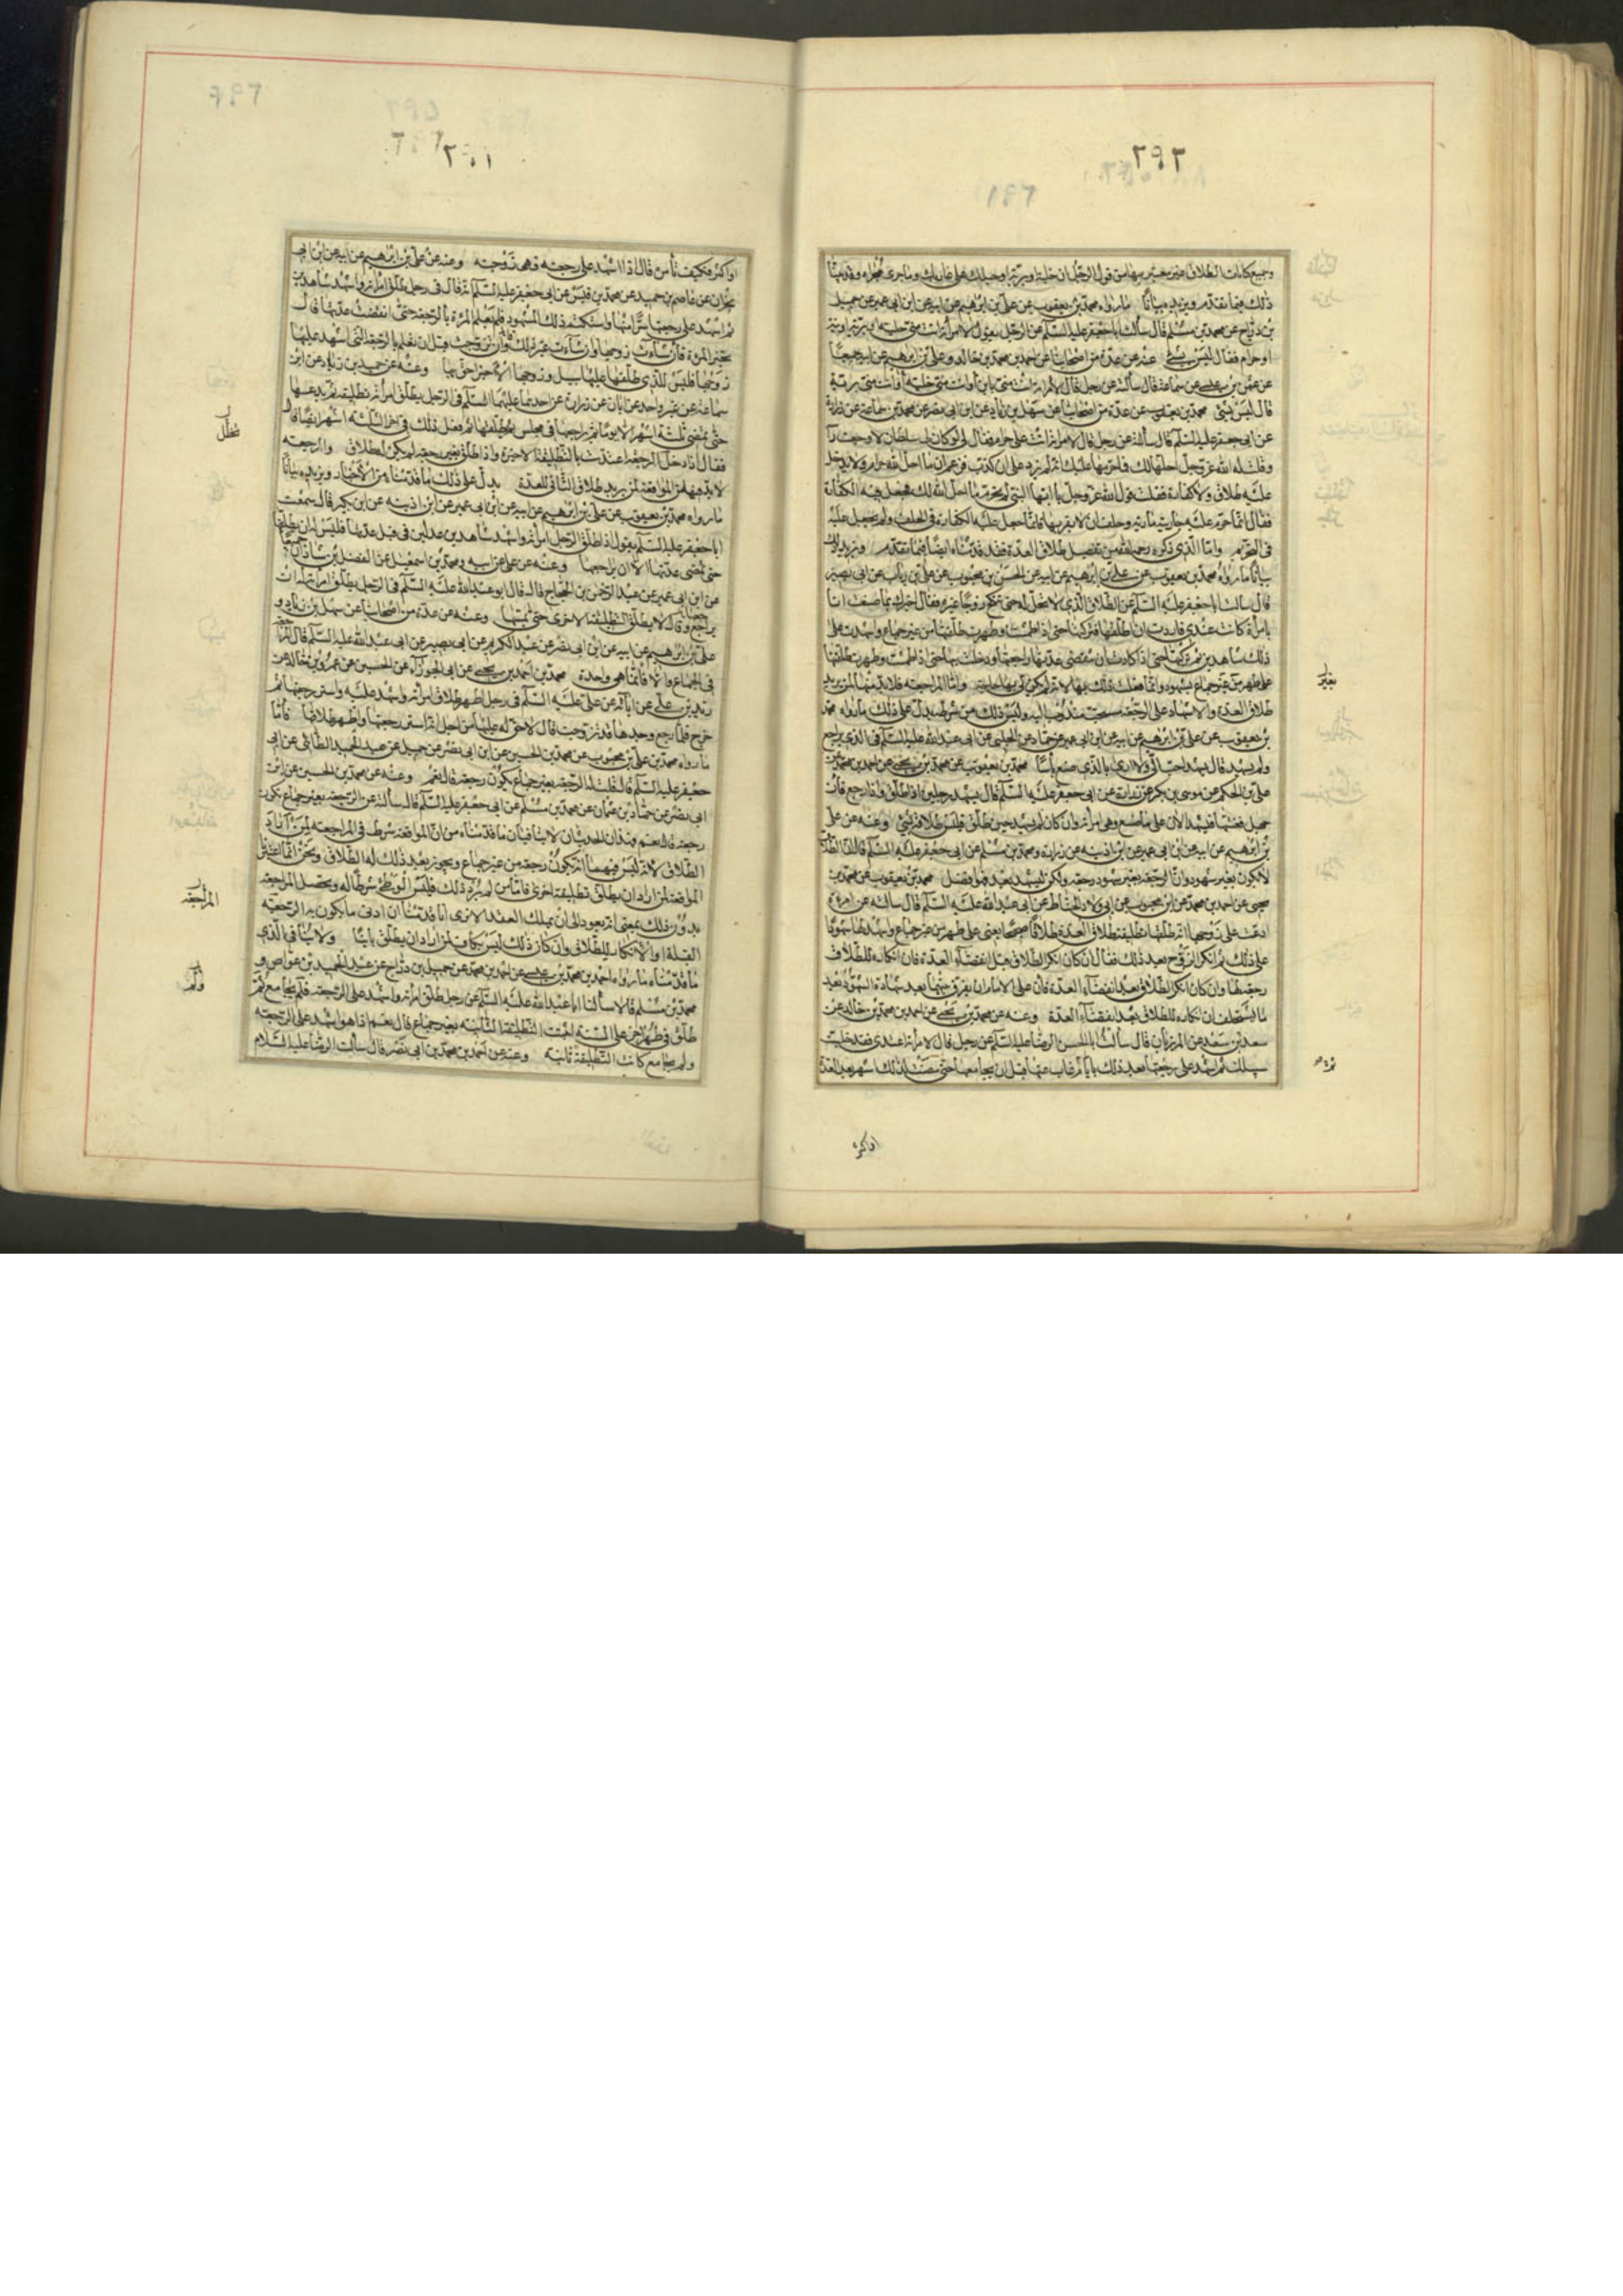 ٢٩٢
وجميع كنايات الطلاق غير معتبر بها من قول الرجل ان خلية وبرية او حبلك على غاربك وما جرى مجراه وقد بينا
ذلك فيما تقدم ويزيده بيانا ما رواه محمد بن يعقوب عن علي بن ابراهيم عن ابيه عن ابن ابي عمير عن جميل
بن دراج عن محمد بن مسلم قال سألت ابا جعفر عليه السلم عن الرجل يقول لامرأته انت مني خلية او برية او بتة
او حرام فقال ليس بشئ عنه عن عدة من اصحابنا عن احمد بن محمد بن خالد وعلي بن ابرهيم عن ابيه جميعا
عن عثمن بن عيسى عن سماعة قال سألته عن رجل قال لامرأته انت مني باين وانت مني خلية وانت مني برية
قال ليس بشئ محمد بن يعقوب عن عدة من اصحابنا عن سهل بن زياد عن ابن ابي نصر عن محمد بن سماعة عن زرارة
عن ابي جعفر عليه السلم قال سألته عن رجل قال لامرأته انت علي حرام فقال لي لو كان لي سلطان لاوجعت رأ
وقلت له الله عز وجل احلها لك فما حرمها عليك انه لم يزد على ان كذب فزعم ان ما احل الله حرام ولا يدخل
عليه طلاق ولا كفارة فقلت قول الله عز وجل يا ايها النبي لم تحرم ما احل الله لك فجعل فيه الكفارة
فقال انما حرم عليه جاريته مارية وحلف ان لا يقربها فانما جعل عليه الكفارة في الحلف ولم يجعل عليه
في التحريم واما الذي ذكره رحمه الله من تفصيل طلاق العدة فقد قدمناه ايضا فيما تقدم ويزيد ذلك
بيانا ما رواه محمد بن يعقوب عن علي بن ابرهيم عن ابيه عن الحسن بن محبوب عن علي بن رياب عن ابي بصير
قال سالت ابا جعفر عليه السلم عن الطلاق الذي لا تحل له حتى تنكح زوجا غيره فقال اخبرك بما صنعت انا
بامرأة كانت عندي فاردت ان اطلقها فتركتها حتى اذا طمثت وطهرت طلقتها من غير جماع واشهدت على
ذلك شاهدين ثم تركتها حتى اذا كادت ان تنقضي عدتها راجعتها ودخلت بها حتى اذا طمثت وطهرت طلقتها
على طهر من غير جماع بشهود وانما فعلت ذلك بها لانه لم يكن لي بها حاجة واما المراجعة فلا بد منها لمن يريد
طلاق العدة والاشهاد على الرجعة مستحب مندوب اليه وليس ذلك من شرطه يدل على ذلك ما رواه محمد
بن يعقوب عن علي بن ابرهيم عن ابيه عن ابن ابي عمير عن حماد عن الحلبي عن ابي عبد الله عليه السلم في الذي يراجع
ولم يشهد قال يشهد احب الي ولا ارى بالذي صنع بأسا محمد بن يعقوب عن محمد بن يحيى عن احمد بن محمد عن
علي بن الحكم عن موسى بن بكر عن زرارة عن ابي جعفر عليه السلم قال يشهد رجلين اذا طلق واذا رجع فان
جهل فغشيها فليشهد الان على ما صنع وهي امرأته وان كان لم يشهد حين طلق فليس طلاقه بشئ وعنه عن علي
بن ابرهيم عن ابيه عن ابن ابي عمير عن ابن اذينه عن زرارة ومحمد بن مسلم عن ابي جعفر عليه السلم قال ان الطلاق
لا يكون بغير شهود وان الرجعة بغير شهود رجعة ولكن ليشهد بعد فهو افضل محمد بن يعقوب عن محمد بن
يحيى عن احمد بن محمد عن ابن محبوب عن ابي ولاد الحناط عن ابي عبد الله عليه السلم قال سالته عن امرءة
ادعت على زوجها انه طلقها تطليقة طلاق العدة طلاقا صحيحا يعني على طهر من غير جماع واشهد لها شهودا
على ذلك ثم انكر الزوج بعد ذلك فقال ان كان انكر الطلاق قبل انقضاء العدة فان انكاره للطلاق
رجعة لها وان كان انكر الطلاق بعد انقضاء العدة فان على الامام ان يفرق بينهما بعد شهادة الشهود بعد
ما يستحلف ان انكاره للطلاق بعد انقضاء العدة وعنه عن محمد بن يحيى عن احمد بن محمد بن خالد عن
سعد بن سعد عن المرزبان قال سألت ابا الحسن الرضا عليه السلم عن رجل قال لامرأته اعتدي فقد خليت
سبيلك ثم اشهد على رجعتها بعد ذلك بايام ثم غاب عنها قبل ان يجامعها حتى مضت لذلك اشهر بعد العدة
بغير
او اكثر
٢٠١
او اكثر فكيف تأمره قال اذا اشهد على رجعته فهي زوجته وعنه عن علي بن ابرهيم عن ابيه عن ابن ابي
نجران عن عاصم بن حميد عن محمد بن قيس عن ابي جعفر عليه السلم انه قال في رجل طلق امرأته واشهد شاهدين
ثم اشهد على رجعتها سرا منها واستكتم ذلك الشهود فلم تعلم المرءة بالرجعة حتى انقضت عدتها قال
تخير المرءة فان شاءت زوجها وان شاءت غير ذلك وان تزوجت قبل ان تعلم بالرجعة التي اشهد عليها
زوجها فليس للذي طلقها عليها سبيل وزوجها الاخير احق بها وعنه عن حميد بن زياد عن ابن
سماعة عن غير واحد عن ابان عن زرارة عن احدهما عليهما السلم في الرجل يطلق امرأته تطليقة ثم يدعها
حتى تمضي ثلثة اشهر الا يوما ثم يراجعها في مجلس ثم يطلقها ثم فعل ذلك في اخر الثلثة اشهر ايضا قال
فقال اذا دخل الرجعة اعتدت بالتطليقة الاخيرة واذا طلق بغير رجعة لم يكن له طلاق والرجعة
لا بد فيها من المواقعة لمن يريد طلاق الثاني للعدة يدل على ذلك ما قدمناه من الاخبار ويزيده بيانا
ما رواه محمد بن يعقوب عن علي بن ابرهيم عن ابيه عن ابن ابي عمير عن ابن اذينه عن ابن بكير قال سمعت
ابا جعفر عليه السلم يقول اذا طلق الرجل امرأته واشهد شاهدين عدلين في قبل عدتها فليس له ان يطلقها
حتى تنقضي عدتها الا ان يراجعها وعنه عن علي عن ابيه ومحمد بن اسمعيل عن الفضل بن شاذان جميعا
عن ابن ابي عمير عن عبد الرحمن بن الحجاج قال قال ابو عبد الله عليه السلم في الرجل يطلق امرأته له ان
يراجع وقال لا يطلق التطليقة الاخرى حتى يمسها وعنه عن عدة من اصحابنا عن سهل بن زياد و
علي بن ابرهيم عن ابيه عن ابن ابي نصر عن عبد الكريم عن ابي بصير عن ابي عبد الله عليه السلم قال المراجعة
في الجماع والا فانما هي واحدة محمد بن احمد بن يحيى عن ابي الجوزاء عن الحسين عن عمرو بن خالد عن
زيد بن علي عن ابائه عن علي عليه السلم في رجل اظهر طلاق امرأته واشهد عليه واسر رجعتها ثم
خرج فلما رجع وجدها قد تزوجت قال لا حق له عليها من اجل انه اسر رجعتها واظهر طلاقها فاما
ما رواه محمد بن علي بن محبوب عن محمد بن الحسين عن ابن ابي نصر عن جميل عن عبد الحميد الطائي عن ابي
جعفر عليه السلم قال قلت له الرجعة بغير جماع يكون رجعة قال نعم وعنه عن محمد بن الحسين عن ابن
ابي نصر عن حماد بن عثمان عن محمد بن مسلم عن ابي جعفر عليه السلم قال سألته عن الرجعة بغير جماع يكون
رجعة قال نعم فهذان الحديثان لا ينافيان ما قدمناه من ان المواقعة شرط في المراجعة لمن اراد
الطلاق لانه ليس فيهما انه يكون رجعة من غير جماع ويجوز بعد ذلك له الطلاق ونحن انما اعتبرنا
المواقعة لمن اراد ان يطلق تطليقة اخرى فاما من لم يرد ذلك فليس الوطئ شرطا له ويحصل المراجعة
بدون ذلك بمعنى انه يعود الى ان يملك العقد الا ترى انا قد بينا ان ادنى ما يكون به الرجعة
القبلة او الانكار للطلاق وان كان ذلك ليس بكاف لمن اراد ان يطلق باينا ولا ينافي الذي
ما قدمناه ما رواه احمد بن محمد بن عيسى عن احمد بن محمد عن جميل بن دراج عن عبد الحميد بن عواض و
محمد بن مسلم قالا سألنا ابا عبد الله عليه السلم عن رجل طلق امرأته واشهد على الرجعة فلم يجامع ثم
طلق في طهر اخر على السنة اتثبت التطليقة الثانية بغير جماع قال نعم اذا هو اشهد على الرجعة
ولم يجامع كانت التطليقة ثابتة وعنه عن احمد بن محمد بن ابي نصر قال سألت الرضا عليه السلام
المراجعة
ولم